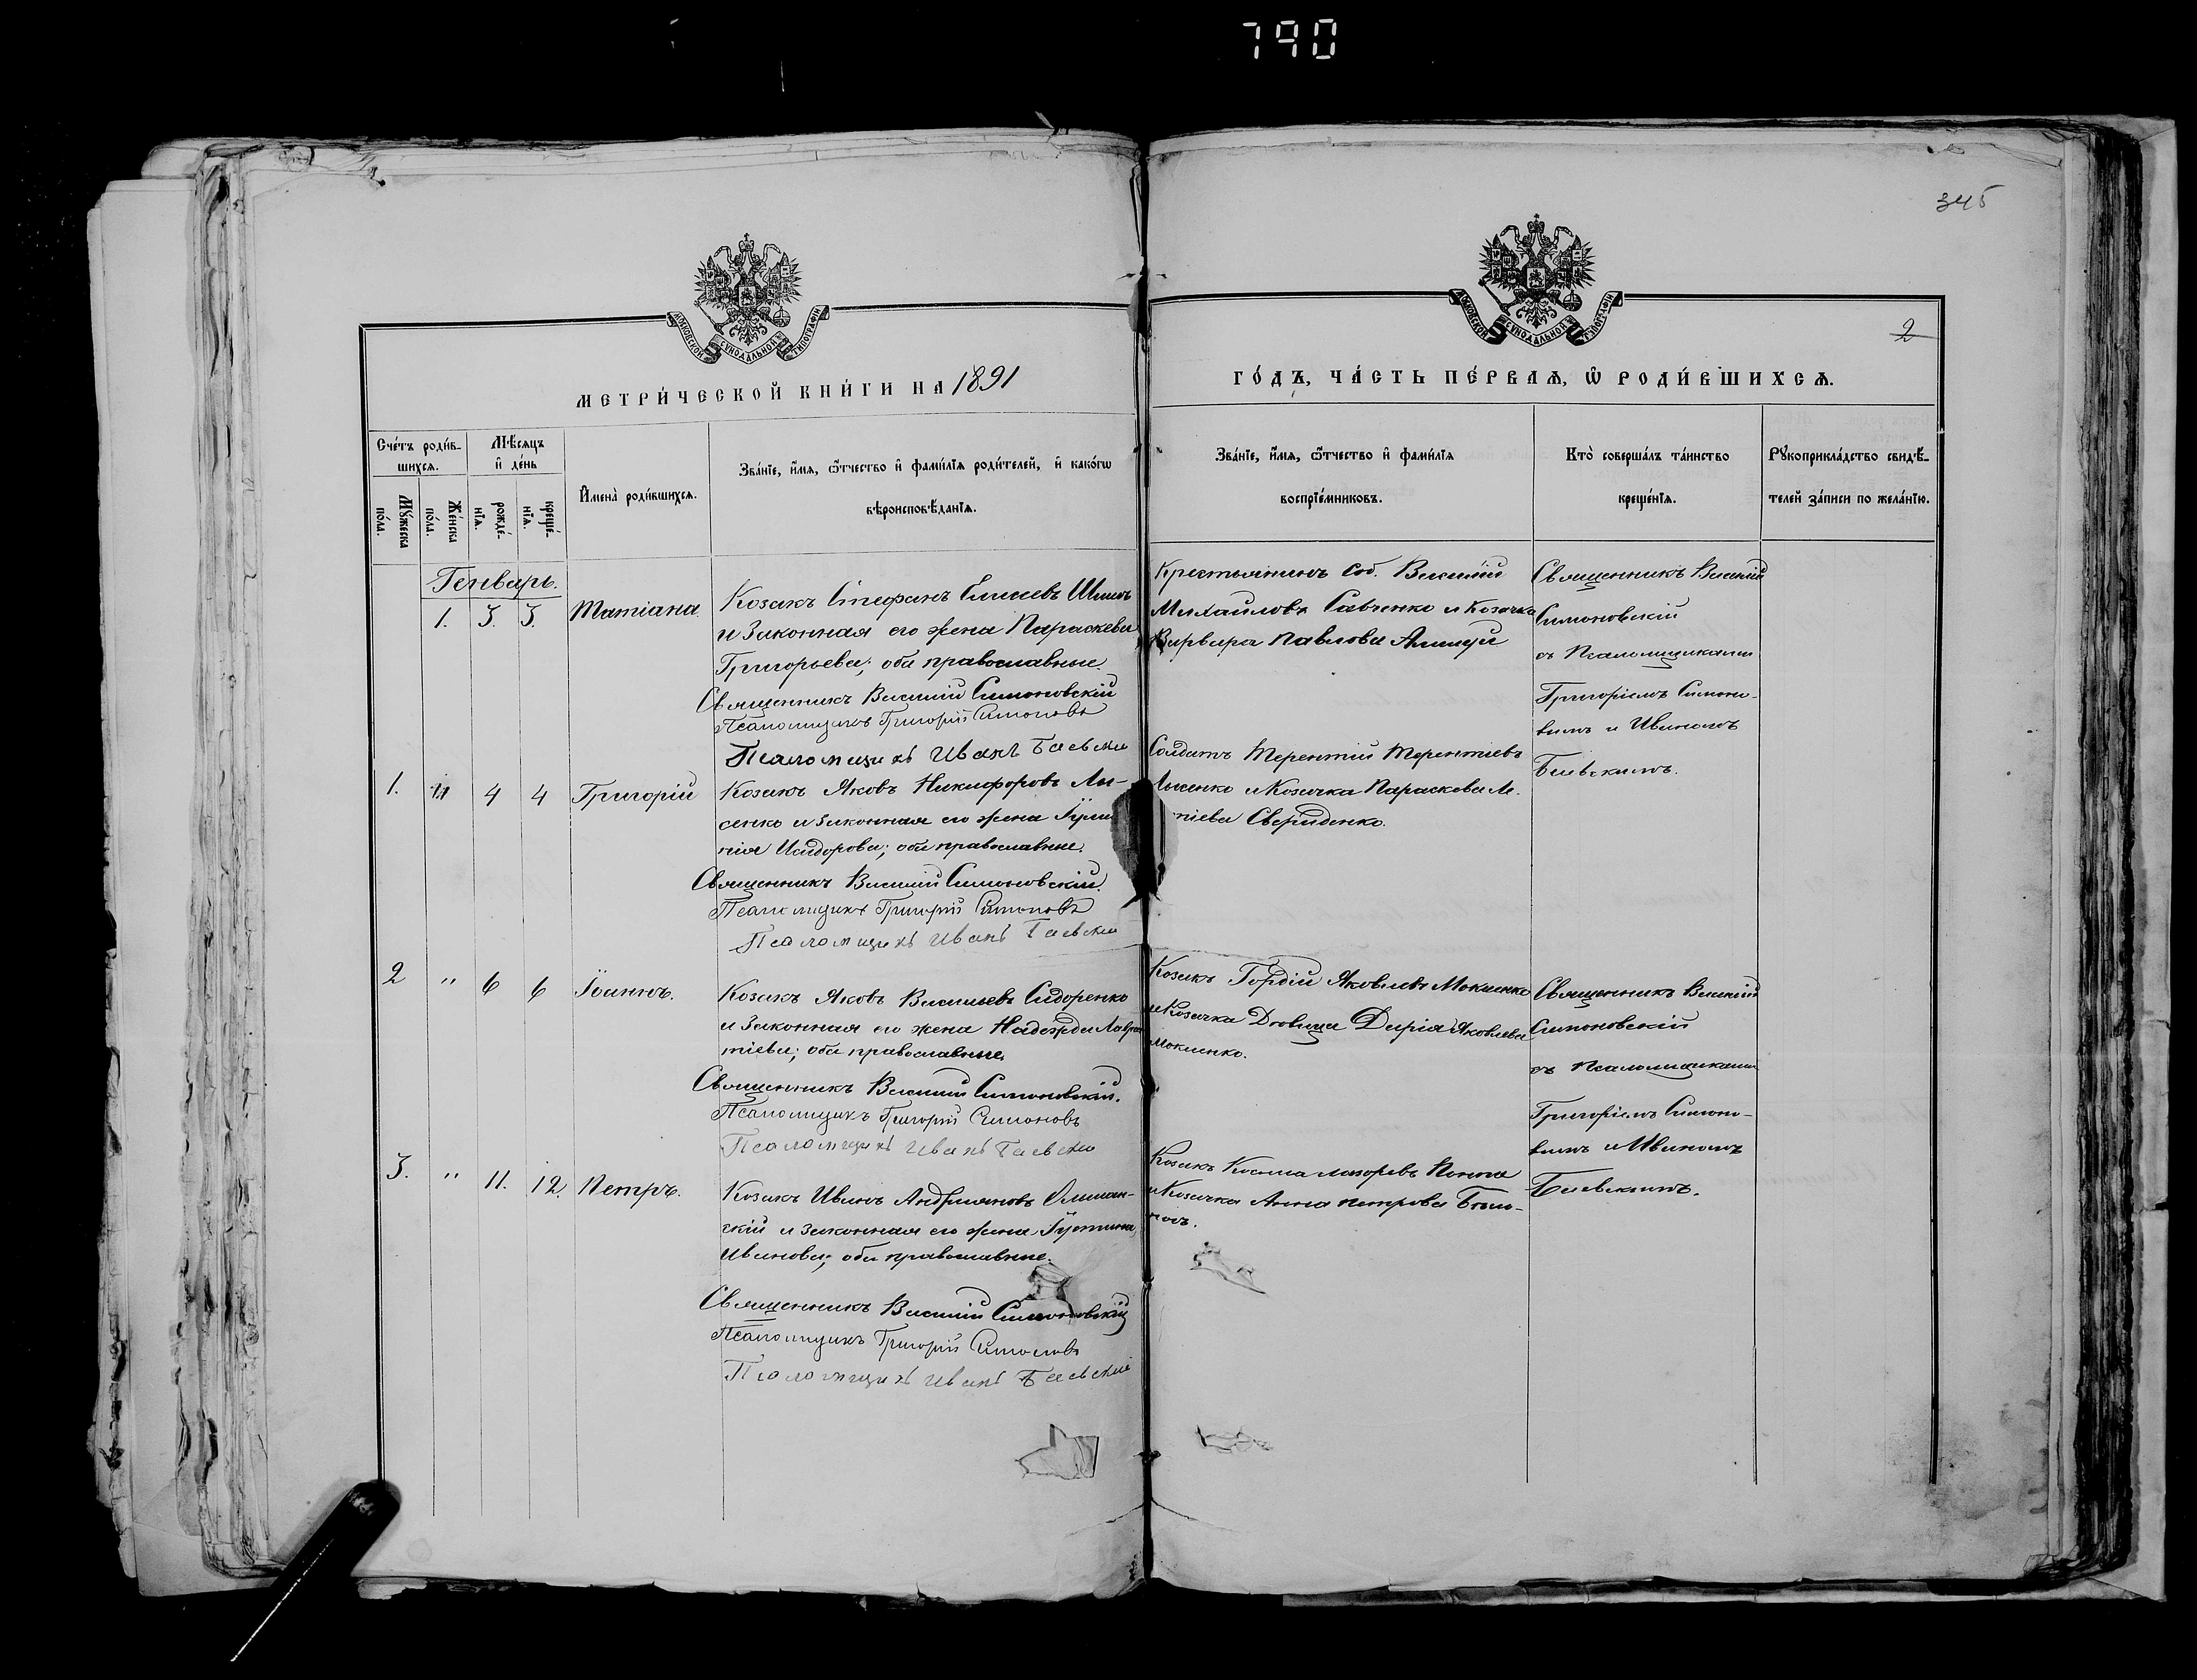 790
345
МОСКОВСКОЙ СѴНОДАЛЬНОЙ ТИПОГРАФІИ
МОСКОВСКОЙ СѴНОДАЛЬНОЙ ТИПОГРАФІИ
2
МЕТРИ́ЧЕСКОЙ КНИ́ГИ НА 1891
ГО́ДЪ, ЧА́СТЬ ПЕ́РВАѦ, Ѽ РОДИ́ВШИХСѦ.
Сче́тъ роди́в-
шихсѧ.
Мѣ́сяцъ
и҆ де́нь
Мꙋ́жеска
по́ла.
Же́нска
по́ла.
рожде́-
нїѧ.
креще́-
нїѧ.
И҆мена̀ роди́вшихсѧ.
Зва́нїе, и҆́мѧ, ѻ҆́тчество и҆ фами́лїѧ роди́телей, и҆ како́гѡ
вѣроисповѣ́данїѧ.
Зва́нїе, и҆́мѧ, ѻ҆́тчество и҆ фами́лїѧ
воспрїе́мниковъ.
Кто̀ соверша́лъ та́инство
креще́нїѧ.
Рꙋкоприкла́дство свидѣ́-
телей за́писи по жела́нїю.
Генварь.
1. 3. 3. Татіана.
Козакъ Стефанъ Елисеевъ
и законная его жена Параскева
Григорьева; оба православные.
Священникъ Василій Симоновскій
Псаломщикъ Григорій Симоновъ
Псаломщикъ Иванъ Баевскій
Крестьянинъ соб. Василій
Михайловъ Савченко и козачка
Варвара Павлова
Священникъ Василій
Симоновскій
съ Псаломщиками
Григоріемъ Симоно-
вымъ и Иваномъ
Баевскимъ.
1. " 4 4 Григорій
Козакъ Яковъ Никифоровъ Лы-
сенко и законная его жена
Исидорова; оба православные.
Священникъ Василій Симоновскій.
Псаломщикъ Григорій Симоновъ
Псаломщикъ Иванъ Баевскій
Солдатъ Терентій Терентіевъ
Лысенко и козачка Параскева
Свериденко.
2 " 6 6 Іоаннъ.
Козакъ Яковъ Васильевъ Сидоренко
и законная его жена Надежда Лаврен
тіева; оба православные.
Священникъ Василій Симоновскій.
Псаломщикъ Григорій Симоновъ
Псаломщикъ Иванъ Баевскій
Козакъ Гордій Яковлевъ Мокіенко
и козачка Дѣвица Дарія Яковлева
Мокіенко.
Священникъ Василій
Симоновскій
съ Псаломщиками
Григоріемъ Симоно-
вымъ и Иваномъ
Баевскимъ.
3. " 11. 12. Петръ.
Козакъ Иванъ Андріяновъ
скій и законная его жена Іустина
Иванова; оба православные.
Священникъ Василій Симоновскій
Псаломщикъ Григорій Симоновъ
Псаломщикъ Иванъ Баевскій
Козакъ Косма
и козачка Анна Петрова